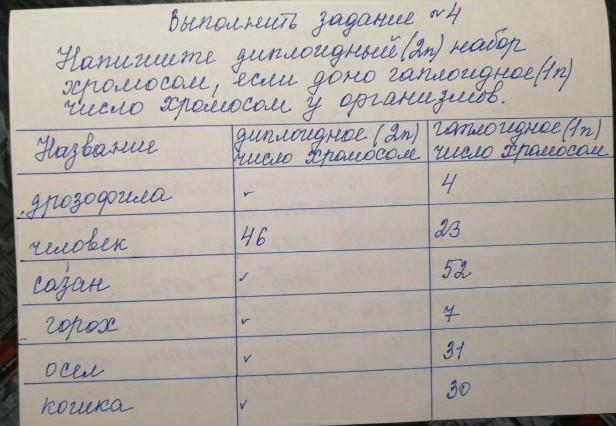 Выполнить задание №4
Напишите диплоидный (2n) набор
хромосом, если доно гаплоидное (1n)
число хромосом у организмов.
Название диплоидное (2n) число хромосом гаплоидное (1n) число хромосом
дрозофила ✓ 4
человек 46 23
сазан ✓ 52
горох ✓ 7
осел ✓ 31
кошка ✓ 30